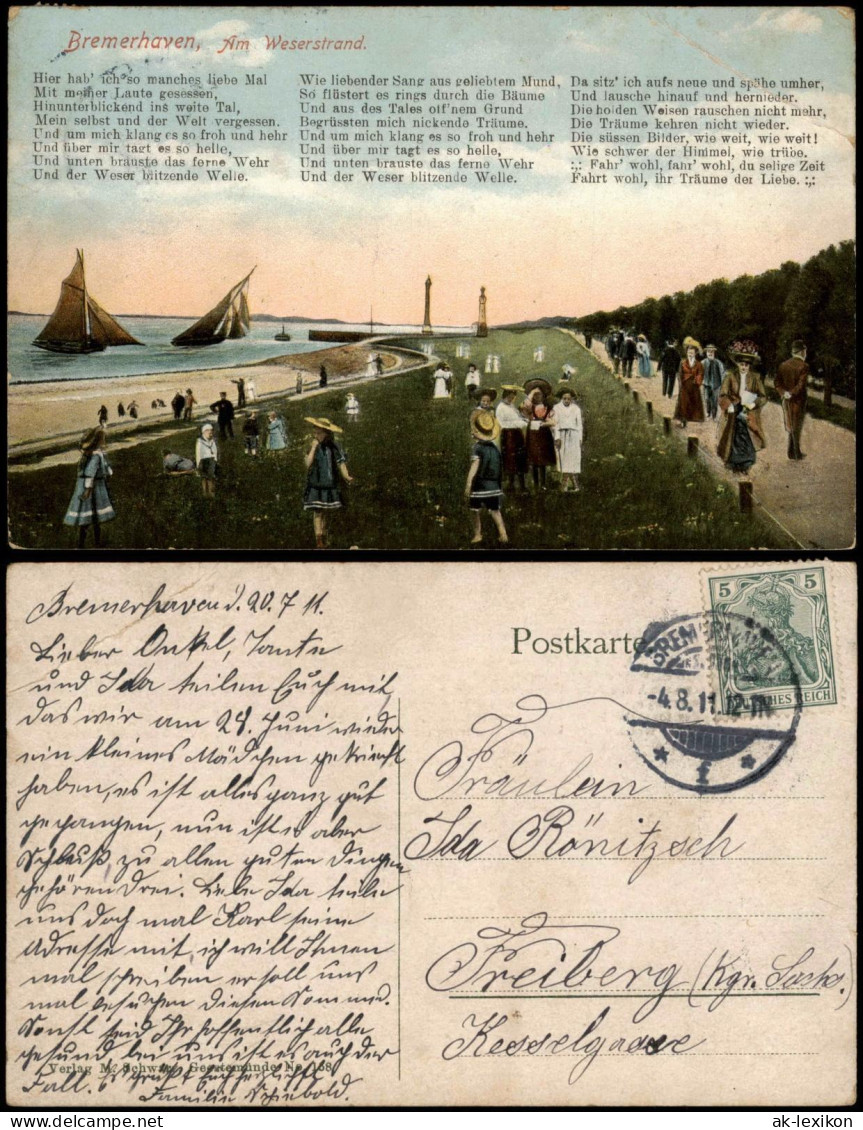 Bremerhaven, Am Weserstrand.
Hier hab' ich so manches liebe Mal
Mit meiner Laute gesessen,
Hinunterblickend ins weite Tal,
Mein selbst und der Welt vergessen.
Und um mich klang es so froh und hehr
Und über mir tagt es so helle,
Und unten brauste das ferne Wehr
Und der Weser blitzende Welle.
Wie liebender Sang aus geliebtem Mund,
So flüstert es rings durch die Bäume
Und aus des Tales off'nem Grund
Begrüssten mich nickende Träume.
Und um mich klang es so froh und hehr
Und über mir tagt es so helle,
Und unten brauste das ferne Wehr
Und der Weser blitzende Welle.
Da sitz' ich aufs neue und spähe umher,
Und lausche hinauf und hernieder.
Die holden Weisen rauschen nicht mehr,
Die Träume kehren nicht wieder.
Die süssen Bilder, wie weit, wie weit!
Wie schwer der Himmel, wie trübe.
:,: Fahr' wohl, fahr' wohl, du selige Zeit
Fahrt wohl, ihr Träume der Liebe. :,:
Bremerhaven d. 20.7 11.
Lieber Onkel, Tante
und Ida teilen Euch mit,
das wir am 28. Juni wieder
ein kleines Mädchen gekriegt
haben, es ist alles ganz gut
gegangen, nun ist es aber
Schluß, zu allen guten Dingen
gehören Drei. Liebe Ida teile
uns doch mal Karl seine
Adresse mit, ich will Ihnen
mal schreiben er soll uns
mal besuchen diesen Sommer.
Sonst seid Ihr hoffentlich alle
gesund, bei uns ist es auch der
Fall. Es grüßt Euch herzlich
Familie Schiebold.
Verlag M. Schwarz, Geestemünde No. 138
Postkarte
5 5
DEUTSCHES REICH
BREMERHAVEN
-4.8.11.12-1N.
* f *
Fräulein
Ida Rönitzsch
Freiberg (Kgr. Sachs.
Kesselgasse
ak-lexikon